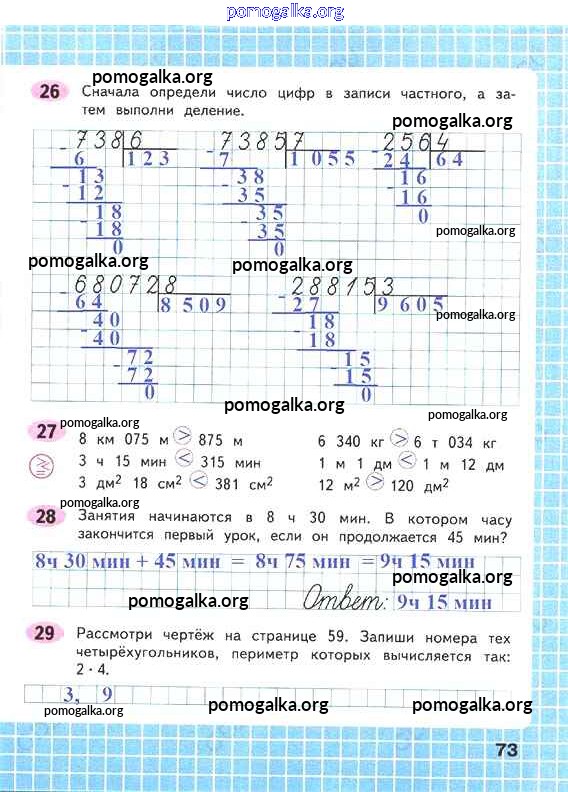 pomogalka.org
pomogalka.org
26 Сначала определи число цифр в записи частного, а за-
тем выполни деление.
pomogalka.org
738 6 7385 7 256 4
- 6 123 - 7 1 055 - 24 64
- 13 - 38 - 16
12 35 16
- 18 - 35 0
18 35
0 0
pomogalka.org
pomogalka.org pomogalka.org
68072 8 28815 3
- 64 8 509 - 27 9 605
- 40 - 18
40 18
- 72 - 15
72 15
0 0
pomogalka.org
pomogalka.org
pomogalka.org
pomogalka.org
27 8 км 075 м > 875 м 6 340 кг > 6 т 034 кг
3 ч 15 мин < 315 мин 1 м 1 дм < 1 м 12 дм
3 дм² 18 см² < 381 см² 12 м² > 120 дм²
pomogalka.org
28 Занятия начинаются в 8 ч 30 мин. В котором часу
закончится первый урок, если он продолжается 45 мин?
8ч 30 мин + 45 мин = 8ч 75 мин = 9ч 15 мин
pomogalka.org
pomogalka.org Ответ: 9ч 15 мин
29 Рассмотри чертёж на странице 59. Запиши номера тех
четырёхугольников, периметр которых вычисляется так:
2 · 4.
3, 9
pomogalka.org pomogalka.org pomogalka.org
73